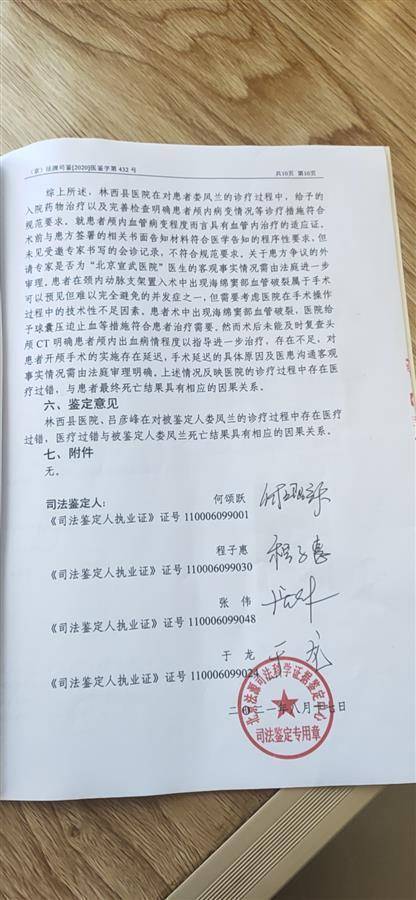 （京）法源司鉴[2020]医鉴字第 432 号 共10页 第10页
综上所述，林西县医院在对患者娄凤兰的诊疗过程中，给予的
入院药物治疗以及完善检查明确患者颅内病变情况等诊疗措施符合
规范要求。就患者颅内血管病变程度而言具有血管内治疗的适应证。
术前与患方签署的相关书面告知材料符合医学告知的程序性要求，但
未见受邀专家书写的会诊记录，不符合规范要求。关于患方争议的外
请专家是否为“北京宣武医院”医生的客观事实情况需由法庭进一步
审理。患者在颈内动脉支架置入术中出现海绵窦部血管破裂属于手术
可以预见但难以完全避免的并发症之一，但需要考虑医院在手术操作
过程中的技术性不足因素。患者术中出现海绵窦部血管破裂，医院给
予球囊压迫止血等措施符合患者治疗需要。然而术后未能及时复查头
颅 CT 明确患者颅内出血病情程度以指导进一步治疗，存在不足，对
患者开颅手术的实施存在延迟，手术延迟的具体原因及医患沟通客观
事实情况需由法庭审理明确。上述情况反映医院的诊疗过程中存在医
疗过错，与患者最终死亡结果具有相应的因果关系。
六、鉴定意见
林西县医院、吕彦峰在对被鉴定人娄凤兰的诊疗过程中存在医疗
过错，医疗过错与被鉴定人娄凤兰死亡结果具有相应的因果关系。
七、附件
无。
司法鉴定人： 何颂跃 何颂跃
《司法鉴定人执业证》证号 110006099001
程子惠 程子惠
《司法鉴定人执业证》证号 110006099030
张 伟 张伟
《司法鉴定人执业证》证号 110006099048
于 龙 于龙
《司法鉴定人执业证》证号 110006099024
北京法源司法科学证据鉴定中心
二〇二一年八月十七日
司法鉴定专用章